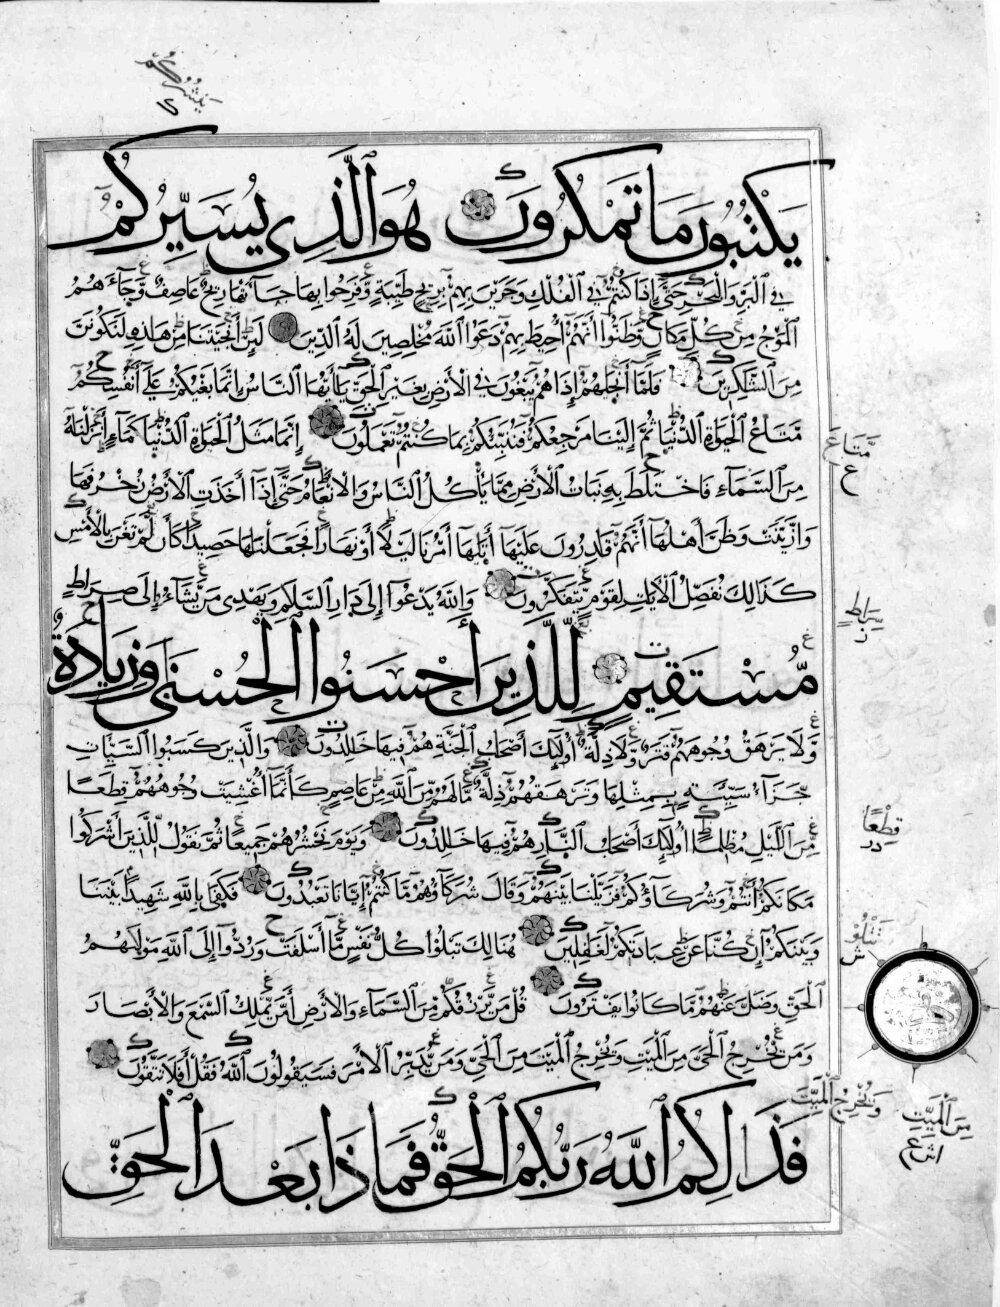 ينشركم
ك
يَكْتُبُونَ مَا تَمْكُرُونَ هُوَ الَّذِي يُسَيِّرُكُمْ
فِي الْبَرِّ وَالْبَحْرِ حَتَّى إِذَا كُنْتُمْ فِي الْفُلْكِ وَجَرَيْنَ بِهِمْ بِرِيحٍ طَيِّبَةٍ وَفَرِحُوا بِهَا جَآءَتْهَا رِيحٌ عَاصِفٌ وَجَآءَهُمُ
الْمَوْجُ مِنْ كُلِّ مَكَانٍ وَظَنُّوا أَنَّهُمْ أُحِيطَ بِهِمْ دَعَوُا اللَّهَ مُخْلِصِينَ لَهُ الدِّينَ لَئِنْ أَنْجَيْتَنَا مِنْ هَذِهِ لَنَكُونَنَّ
مِنَ الشَّاكِرِينَ فَلَمَّا أَنْجَاهُمْ إِذَا هُمْ يَبْغُونَ فِي الْأَرْضِ بِغَيْرِ الْحَقِّ يَا أَيُّهَا النَّاسُ إِنَّمَا بَغْيُكُمْ عَلَى أَنْفُسِكُمْ
مَتَاعُ الْحَيَوةِ الدُّنْيَا ثُمَّ إِلَيْنَا مَرْجِعُكُمْ فَنُنَبِّئُكُمْ بِمَا كُنْتُمْ تَعْمَلُونَ إِنَّمَا مَثَلُ الْحَيَوةِ الدُّنْيَا كَمَآءٍ أَنْزَلْنَاهُ
مِنَ السَّمَآءِ فَاخْتَلَطَ بِهِ نَبَاتُ الْأَرْضِ مِمَّا يَأْكُلُ النَّاسُ وَالْأَنْعَامُ حَتَّى إِذَا أَخَذَتِ الْأَرْضُ زُخْرُفَهَا
وَازَّيَّنَتْ وَظَنَّ أَهْلُهَا أَنَّهُمْ قَادِرُونَ عَلَيْهَا أَتَاهَا أَمْرُنَا لَيْلًا أَوْ نَهَارًا فَجَعَلْنَاهَا حَصِيدًا كَأَنْ لَمْ تَغْنَ بِالْأَمْسِ
كَذَالِكَ نُفَصِّلُ الْآيَاتِ لِقَوْمٍ يَتَفَكَّرُونَ وَاللَّهُ يَدْعُوا إِلَى دَارِ السَّلَامِ وَيَهْدِي مَنْ يَشَآءُ إِلَى صِرَاطٍ
مُسْتَقِيمٍ لِلَّذِينَ أَحْسَنُوا الْحُسْنَى وَزِيَادَةٌ
وَلَا يَرْهَقُ وُجُوهَهُمْ قَتَرٌ وَلَا ذِلَّةٌ أُولَئِكَ أَصْحَابُ الْجَنَّةِ هُمْ فِيهَا خَالِدُونَ وَالَّذِينَ كَسَبُوا السَّيِّئَاتِ
جَزَآءُ سَيِّئَةٍ بِمِثْلِهَا وَتَرْهَقُهُمْ ذِلَّةٌ مَا لَهُمْ مِنَ اللَّهِ مِنْ عَاصِمٍ كَأَنَّمَا أُغْشِيَتْ وُجُوهُهُمْ قِطَعًا
مِنَ اللَّيْلِ مُظْلِمًا أُولَئِكَ أَصْحَابُ النَّارِ هُمْ فِيهَا خَالِدُونَ وَيَوْمَ نَحْشُرُهُمْ جَمِيعًا ثُمَّ نَقُولُ لِلَّذِينَ أَشْرَكُوا
مَكَانَكُمْ أَنْتُمْ وَشُرَكَآؤُكُمْ فَزَيَّلْنَا بَيْنَهُمْ وَقَالَ شُرَكَآؤُهُمْ مَا كُنْتُمْ إِيَّانَا تَعْبُدُونَ فَكَفَى بِاللَّهِ شَهِيدًا بَيْنَنَا
وَبَيْنَكُمْ إِنْ كُنَّا عَنْ عِبَادَتِكُمْ لَغَافِلِينَ هُنَالِكَ تَبْلُوا كُلُّ نَفْسٍ مَا أَسْلَفَتْ وَرُدُّوا إِلَى اللَّهِ مَوْلَاهُمُ
الْحَقِّ وَضَلَّ عَنْهُمْ مَا كَانُوا يَفْتَرُونَ قُلْ مَنْ يَرْزُقُكُمْ مِنَ السَّمَآءِ وَالْأَرْضِ أَمَّنْ يَمْلِكُ السَّمْعَ وَالْأَبْصَارَ
وَمَنْ يُخْرِجُ الْحَيَّ مِنَ الْمَيِّتِ وَيُخْرِجُ الْمَيِّتَ مِنَ الْحَيِّ وَمَنْ يُدَبِّرُ الْأَمْرَ فَسَيَقُولُونَ اللَّهُ فَقُلْ أَفَلَا تَتَّقُونَ
فَذَالِكُمُ اللَّهُ رَبُّكُمُ الْحَقُّ فَمَاذَا بَعْدَ الْحَقِّ
مَتَاعَ
ع
سِرَاطٍ
ز
قِطْعًا
در
تَتْلُوا
ش
وَيُخْرِجُ الْمَيِّتَ
مِنَ الْمَيِّتِ